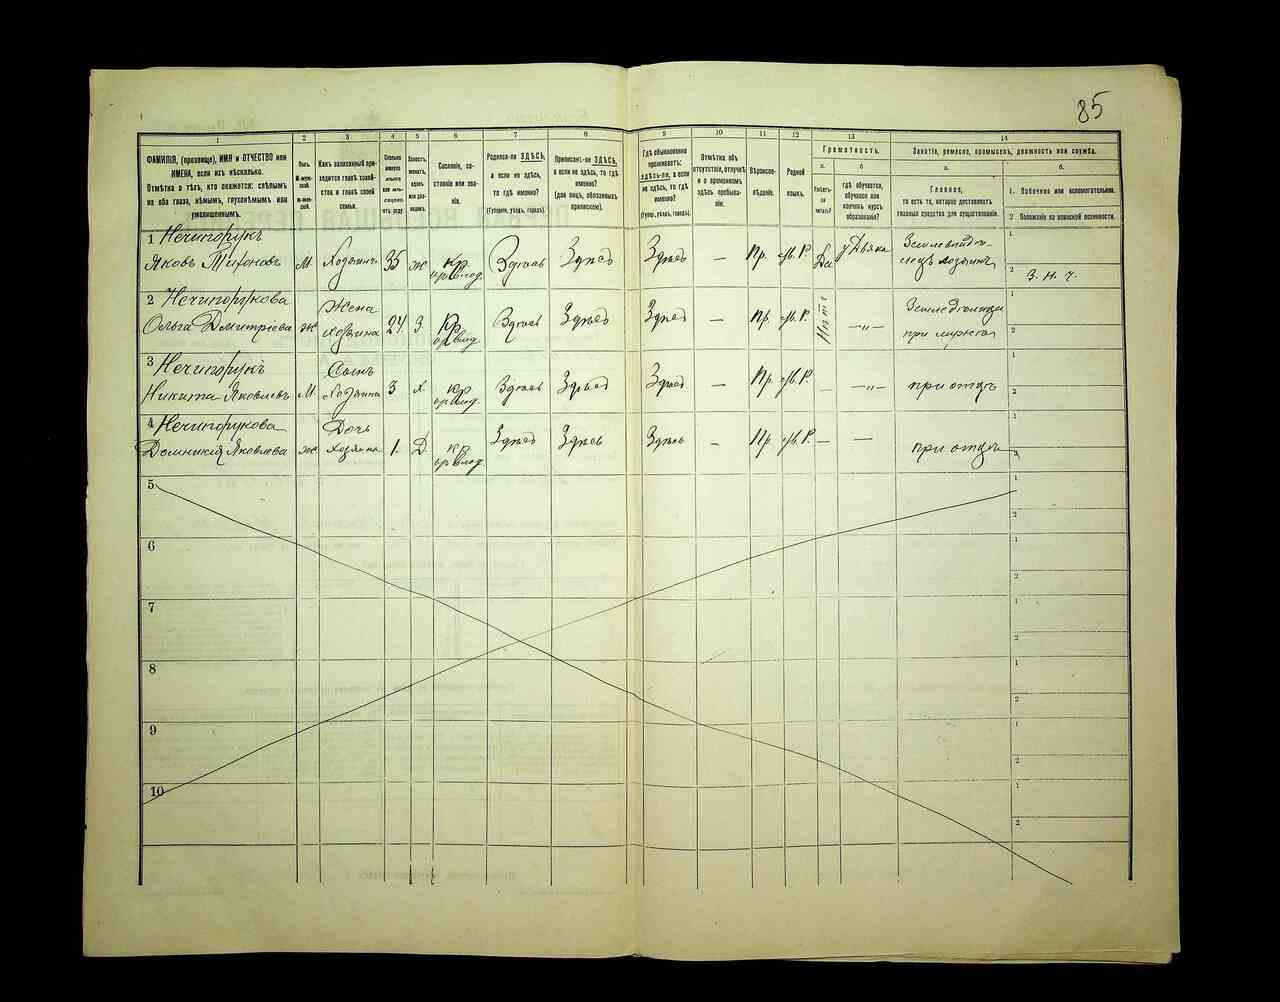 85
1 2 3 4 5 6 7 8 9 10 11 12 13 14
ФАМИЛІЯ, (прозвище), ИМЯ и ОТЧЕСТВО или
ИМЕНА, если ихъ нѣсколько.
Отмѣтка о тѣхъ, кто окажется: слѣпымъ
на оба глаза, нѣмымъ, глухонѣмымъ или
умалишеннымъ.
Полъ.
М-муж-
ской.
Ж-жен-
скій.
Какъ записанный при-
ходится главѣ хозяй-
ства и главѣ своей
семьи.
Сколько
минуло
лѣтъ
или мѣ-
сяцевъ
отъ роду.
Холостъ,
женатъ,
вдовъ
или раз-
веденъ.
Сословіе, со-
стояніе или зва-
ніе.
Родился-ли ЗДѢСЬ,
а если не здѣсь,
то гдѣ именно?
(Губернія, уѣздъ, городъ).
Приписанъ-ли ЗДѢСЬ,
а если не здѣсь, то гдѣ
именно?
(для лицъ, обязанныхъ
припискою).
Гдѣ обыкновенно
проживаетъ:
здѣсь-ли, а если
не здѣсь, то гдѣ
именно?
(Губер., уѣздъ, городъ).
Отмѣтка объ
отсутствіи, отлучкѣ
и о временномъ
здѣсь пребыва-
ніи.
Вѣроиспо-
вѣданіе.
Родной
языкъ.
Грамотность.
а.
Умѣетъ-
ли
читать?
б
гдѣ обучается,
обучался или
кончилъ курсъ
образованія?
Занятіе, ремесло, промыселъ, должность или служба.
а.
Главное,
то есть то, которое доставляетъ
главныя средства для существованія.
б.
1. Побочное или вспомогательное.
2 Положеніе по воинской повинности.
1 Нечипорукъ
Яковъ Тихоновъ М. Хозяинъ 35 Ж кр. Здѣсь Здѣсь Здѣсь — Пр. М. Р. Да у Дьяка Земледѣ-
лецъ хозяинъ
1
2 З. Н. Ч.
2 Нечипорукова
Ольга Дмитріева ж Жена
хозяина 24 З. Кр. Здѣсь Здѣсь Здѣсь — Пр. М. Р. Нѣтъ —„—
при мужѣ
1
2
3 Нечипорукъ
Никита Яковлевъ М. Сынъ
хозяина 3 Х. кр. Здѣсь Здѣсь Здѣсь — Пр. М. Р. — —„— при отцѣ
1
2
4 Нечипорукова
Домникія Яковлева ж Дочь
хозяина 1. Д кр. Здѣсь Здѣсь Здѣсь — Пр. М. Р. — — при отцѣ
1
2
5
1
2
6
1
2
7
1
2
8
1
2
9
1
2
10
1
2